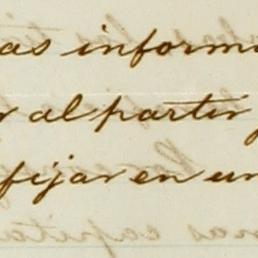 as inform
al partir
fijar en un